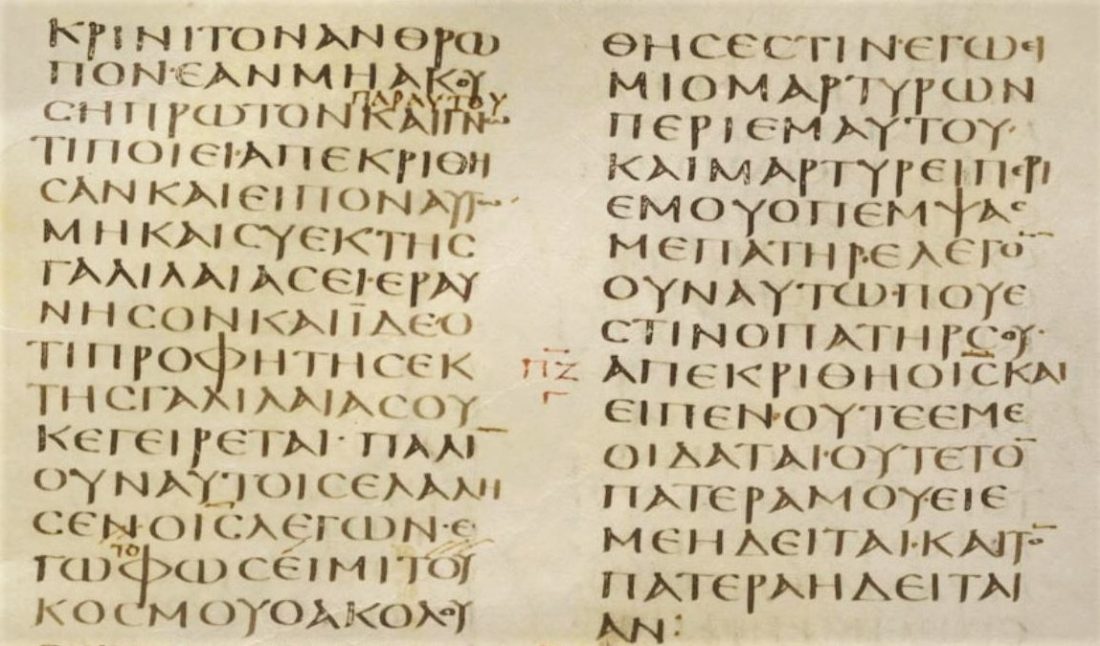 ΚΡΙΝΙΤΟΝΑΝΘΡΩ
ΠΟΝ·ΕΑΝΜΗΑΚΟΥ
ΠΑΡΑΥΤΟΥ
ΣΗΠΡΩΤΟΝΚΑΙΓΝΩ
ΤΙΠΟΙΕΙ·ΑΠΕΚΡΙΘΗ
ϹΑΝΚΑΙΕΙΠΟΝΑΥΤΩ·
ΜΗΚΑΙϹΥΕΚΤΗϹ
ΓΑΛΙΛΑΙΑϹΕΙ·ΕΡΑΥ
ΝΗϹΟΝΚΑΙΪΔΕΟ
ΤΙΠΡΟΦΗΤΗϹΕΚ
ΤΗϹΓΑΛΙΛΑΙΑϹΟΥ
ΚΕΓΕΙΡΕΤΑΙ· ΠΑΛΙ¯
ΟΥΝΑΥΤΟΙϹΕΛΑΛΗ
ϹΕΝ·ΟΙ̅Ϲ̅ΛΕΓΩΝ·Ε
ΤΟ
ΓΩΦΩϹΕΙΜΙΤΟΥ
ΚΟϹΜΟΥΟΑΚΟΛΟΥ
ΘΗϹΕϹΤΙΝ·ΕΓΩΕΙ
ΜΙΟΜΑΡΤΥΡΩΝ
ΠΕΡΙΕΜΑΥΤΟΥ·
ΚΑΙΜΑΡΤΥΡΕΙΠΕΡΙ
ΕΜΟΥΟΠΕΜΨΑϹ
ΜΕΠΑΤΗΡ·ΕΛΕΓΟ¯
ΟΥΝΑΥΤΩ·ΠΟΥΕ
ϹΤΙΝΟΠΑΤΗΡϹΟΥ·
Π̅Ζ̅
Γ
ΑΠΕΚΡΙΘΗΟΙ̅Ϲ̅ΚΑΙ
ΕΙΠΕΝ·ΟΥΤΕΕΜΕ
ΟΙΔΑΤΑΙ·ΟΥΤΕΤΟ¯
ΠΑΤΕΡΑΜΟΥ·ΕΙΕ
ΜΕΗΔΕΙΤΑΙ·ΚΑΙΤΟ¯
ΠΑΤΕΡΑΗΔΕΙΤΑΙ
ΑΝ: